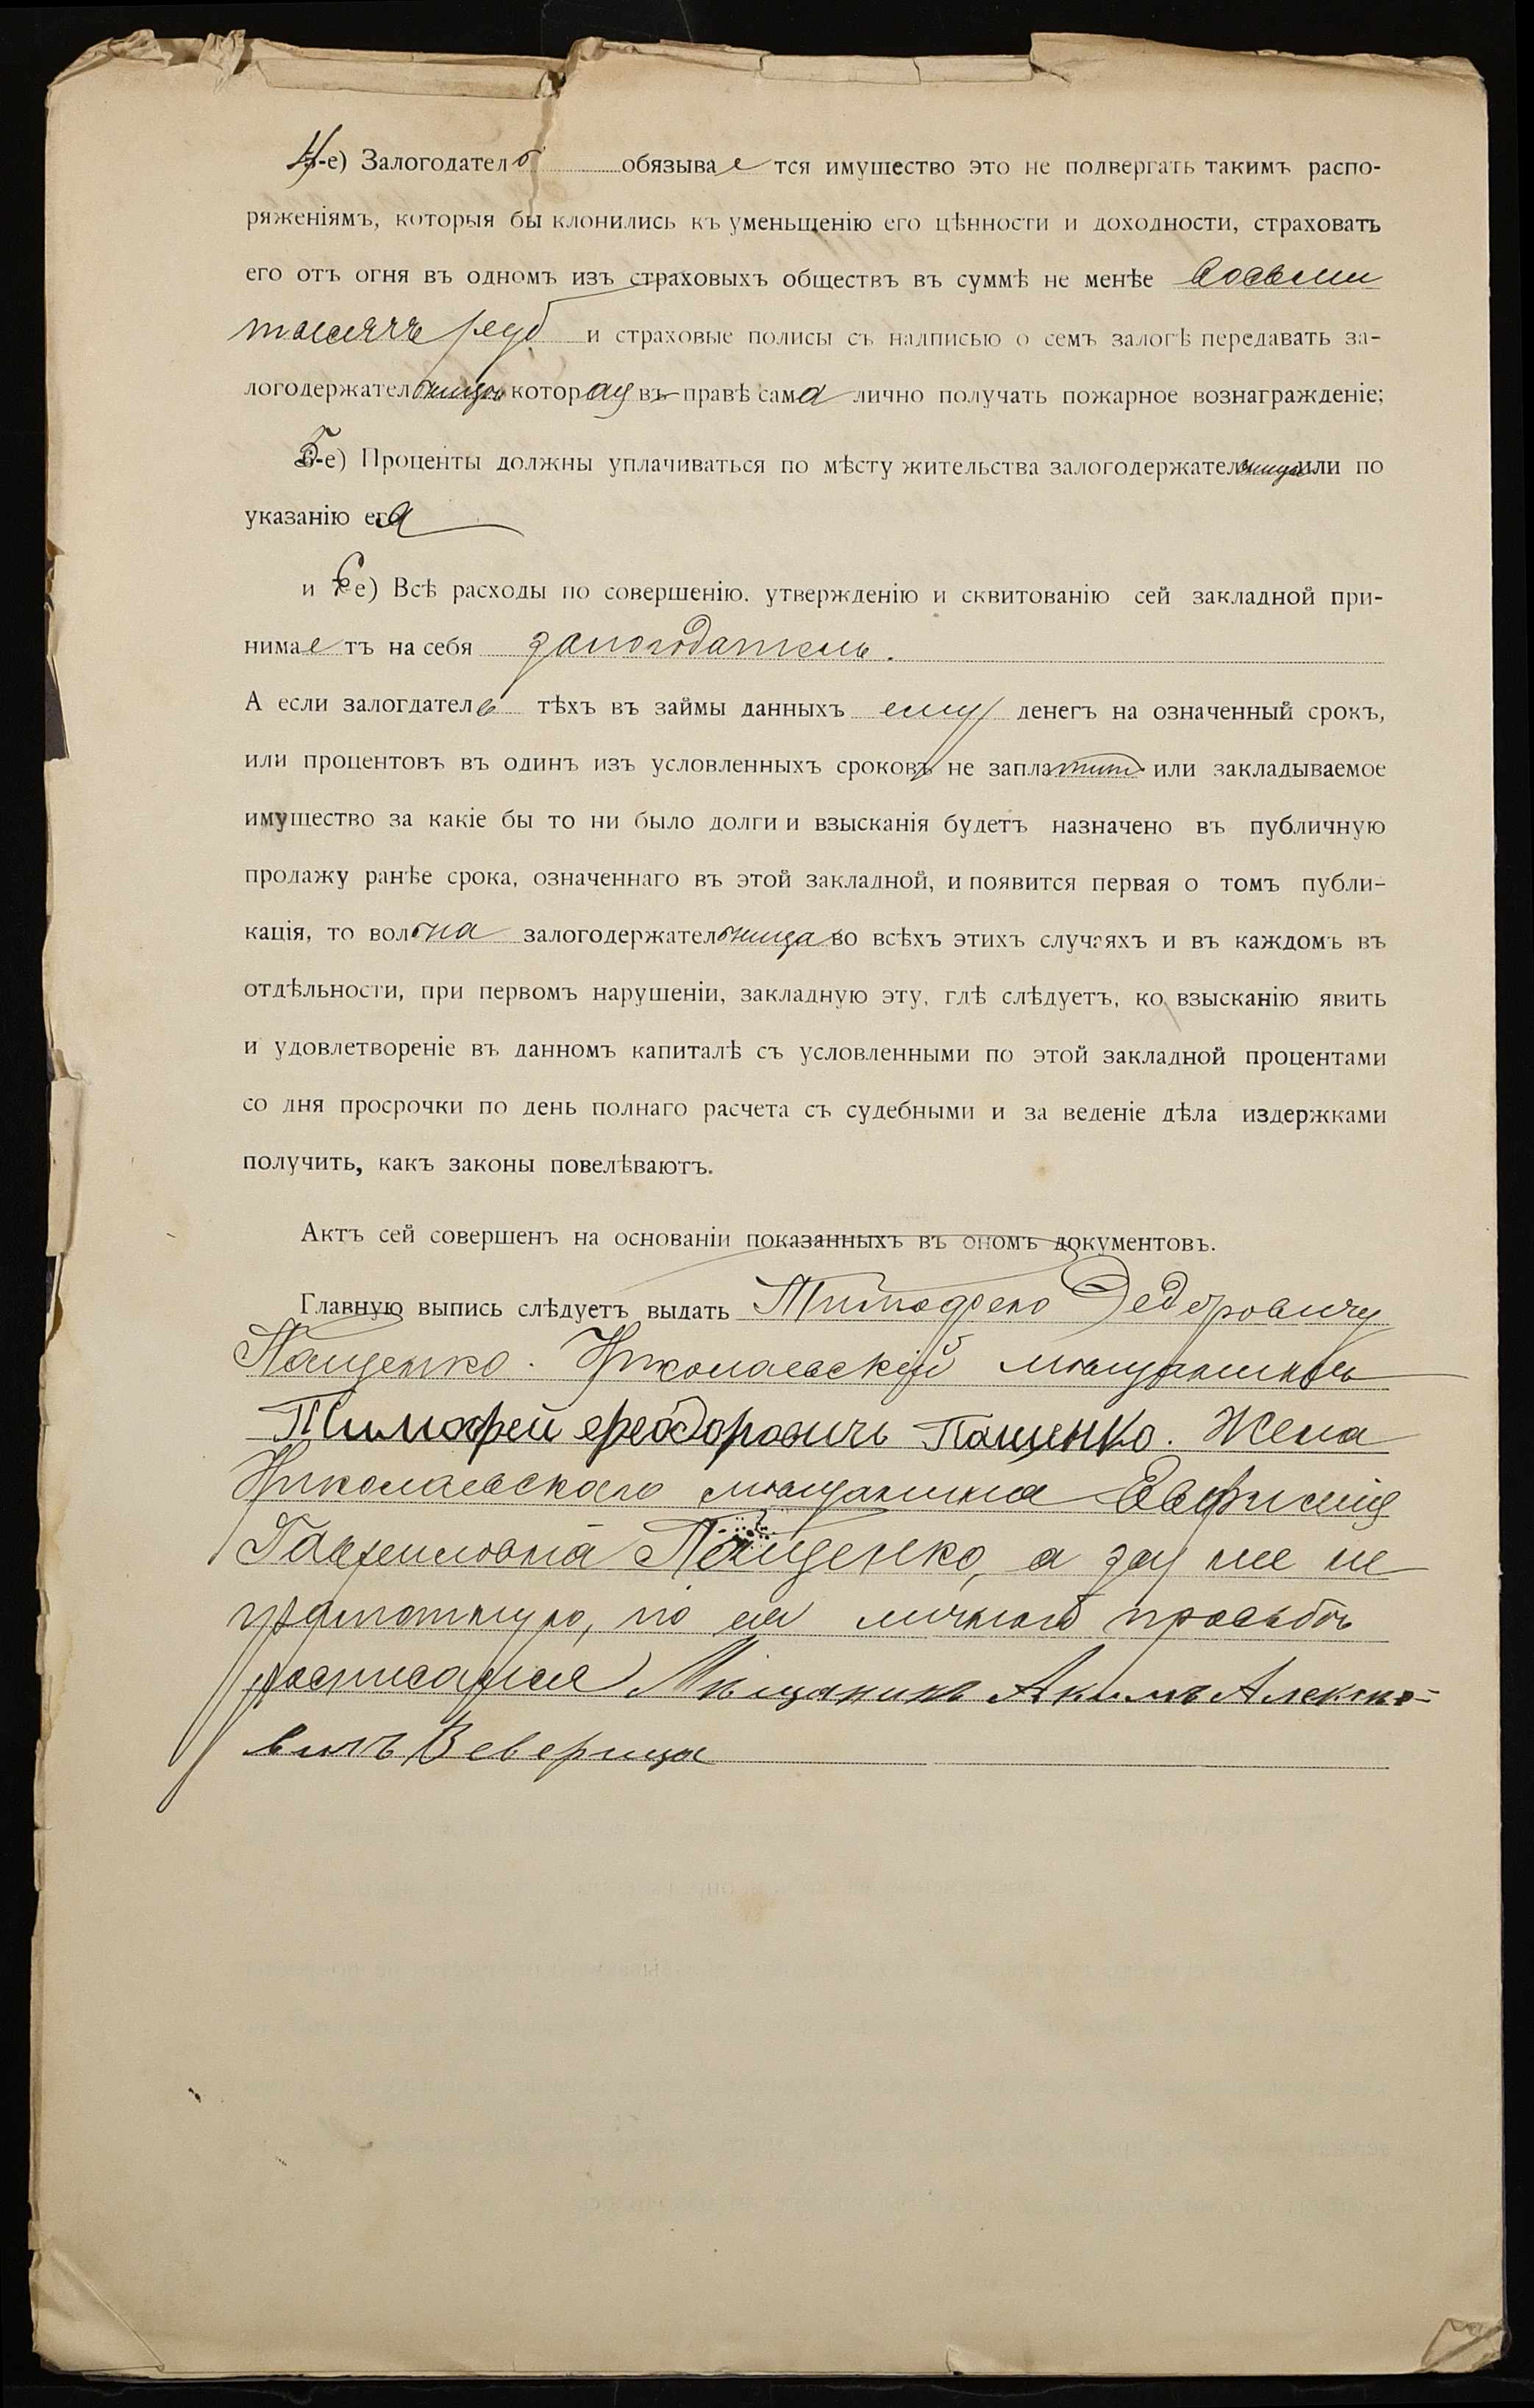 4-е) Залогодатель обязывается имущество это не подвергать такимъ распо-
ряженіямъ, которыя бы клонились къ уменьшенію его цѣнности и доходности, страховать
его отъ огня въ одномъ изъ страховыхъ обществъ въ суммѣ не менѣе восьми
тысячъ руб и страховые полисы съ надписью о семъ залогѣ передавать за-
логодержательницѣ которая въ правѣ сама лично получать пожарное вознагражденіе;
5-е) Проценты должны уплачиваться по мѣсту жительства залогодержательницы или по
указанію ея
и 6 е) Всѣ расходы по совершенію. утвержденію и сквитованію сей закладной при-
нимаетъ на себя залогодатель.
А если залогдатель тѣхъ въ займы данныхъ ему денегъ на означенный срокъ,
или процентовъ въ одинъ изъ условленныхъ сроковъ не заплатитъ или закладываемое
имущество за какіе бы то ни было долги и взысканія будетъ назначено въ публичную
продажу ранѣе срока, означеннаго въ этой закладной, и появится первая о томъ публи-
кація, то вольна залогодержательница во всѣхъ этихъ случаяхъ и въ каждомъ въ
отдѣльности, при первомъ нарушеніи, закладную эту, гдѣ слѣдуетъ, ко взысканію явить
и удовлетвореніе въ данномъ капиталѣ съ условленными по этой закладной процентами
со дня просрочки по день полнаго расчета съ судебными и за веденіе дѣла издержками
получить, какъ законы повелѣваютъ.
Актъ сей совершенъ на основаніи показанныхъ въ ономъ документовъ.
Главную выпись слѣдуетъ выдать Тимофею Федоровичу
Пащенко. Николаевскій мѣщанинъ
Тимофей Феодоровичъ Пащенко. Жена
Николаевскаго мѣщанина Евфимія
Гавриловна Пащенко, а за нее не
грамотную, по ея личной просьбѣ
росписался Мѣщанинъ Акимъ Алексѣе-
вичъ Веверица